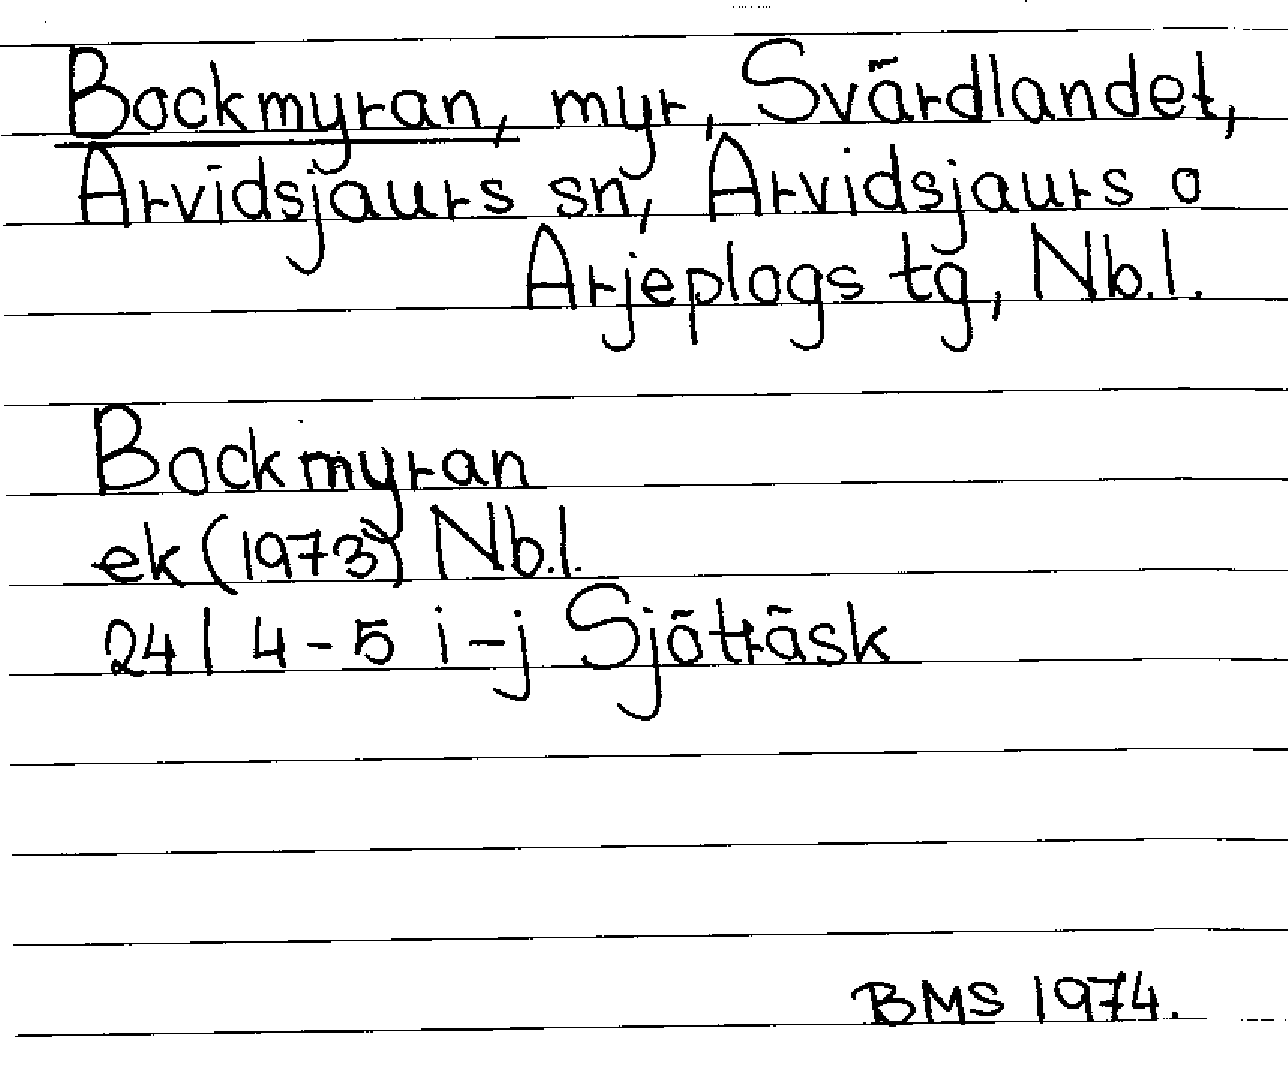 Bockmyran, myr, Svärdlandet,
Arvidsjaurs sn, Arvidsjaurs o
Arjeplogs tg, Nb.l.
Bockmyran
ek (1973) Nb.l.
24 I 4-5 i-j Sjöträsk
BMS 1974.